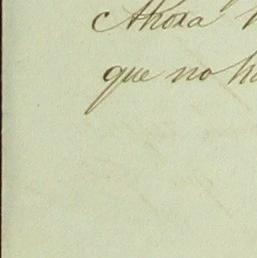 Ahora
que no